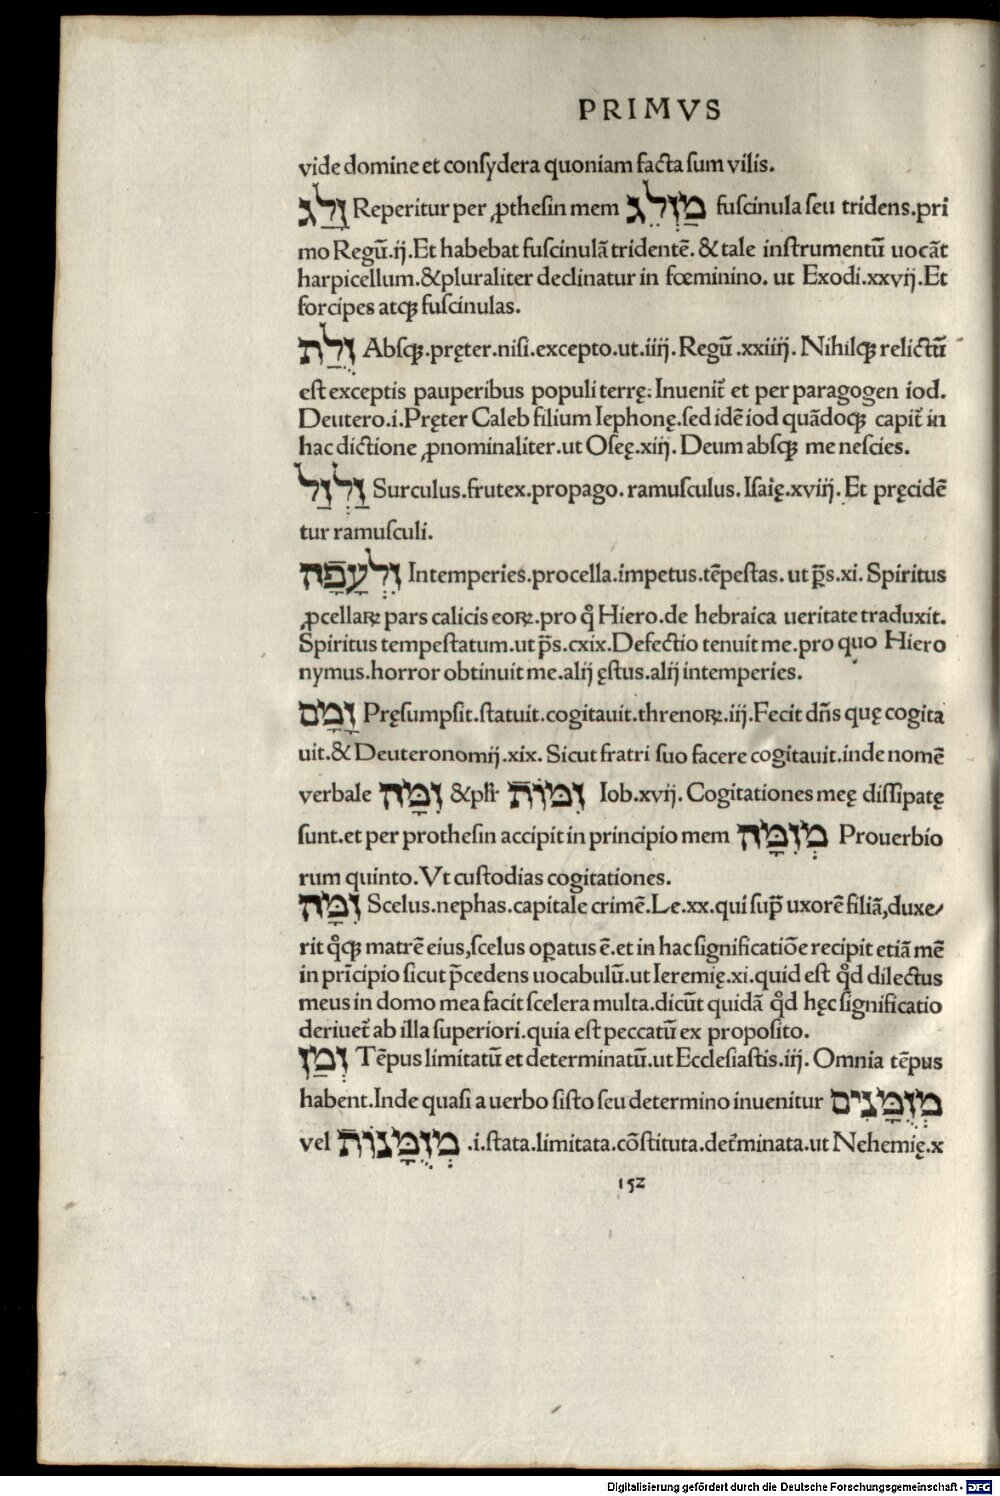 PRIMVS
vide domine et consydera quoniam facta sum vilis.
זָלַג Reperitur per ꝓthesin mem מַזְלֵג fuscinula seu tridens.pri
mo Regū.ij.Et habebat fuscinulā tridentē.& tale instrumentū uocāt
harpicellum.&pluraliter declinatur in fœminino. ut Exodi.xxvij.Et
forcipes atqꝫ fuscinulas.
זֻלַת Absqꝫ.pręter.nisi.excepto.ut.iiij.Regū.xxiiij.Nihilqꝫ relictū
est exceptis pauperibus populi terrę:Inuenit᷑ et per paragogen iod.
Deutero.i.Pręter Caleb filium Iephonę.sed idē iod quādoqꝫ capit᷑ in
hac dictione ꝓnominaliter.ut Oseę.xiij.Deum absqꝫ me nescies.
זַלְזַל Surculus.frutex.propago.ramusculus.Isaię.xviij.Et pręcidē
tur ramusculi.
זִלְעָפָּה Intemperies.procella.impetus.tēpestas.ut p̄s.xi.Spiritus
ꝓcellaꝝ pars calicis eoꝝ.pro qͦ Hiero.de hebraica ueritate traduxit.
Spiritus tempestatum.ut p̄s.cxix.Defectio tenuit me.pro quo Hiero
nymus.horror obtinuit me.alij ęstus.alij intemperies.
זָמַם Pręsumpsit.statuit.cogitauit.threnoꝝ.iij.Fecit dn̄s quę cogita
uit.& Deuteronomij.xix.Sicut fratri suo facere cogitauit.inde nomē
verbale זִמָּה &plr̄ זִמּוֹת Iob.xvij.Cogitationes meę dissipatę
sunt.et per prothesin accipit in principio mem מְזִמָּה Prouerbio
rum quinto.Vt custodias cogitationes.
זִמָּה Scelus.nephas.capitale crimē.Le.xx.qui sup̄ uxorē filiā,duxe⸗
rit qͦqꝫ matrē eius,scelus oꝑatus ē.et in hac significatiōe recipit etiā mē
in prīcipio sicut p̄cedens uocabulū.ut Ieremię.xi.quid est qͦd dilectus
meus in domo mea facit scelera multa.dicūt quidā qͦd hęc significatio
deriuet᷑ ab illa superiori.quia est peccatū ex proposito.
זְמַן Tēpus limitatū et determinatū.ut Ecclesiastis.iij.Omnia tēpus
habent.Inde quasi a uerbo sisto seu determino inuenitur מְזֻמָּנִים
vel מְזֻמָּנוֹת .i.stata.limitata.cōstituta.det᷑minata.ut Nehemię.x
152
Digitalisierung gefördert durch die Deutsche Forschungsgemeinschaft - DFG